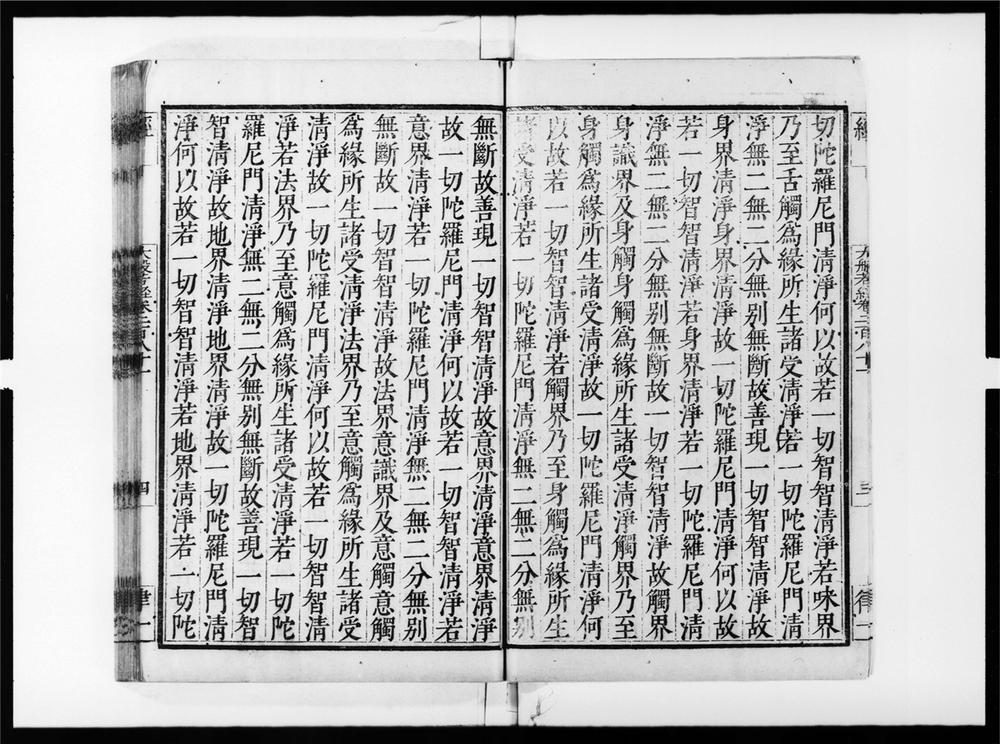 經 大般若經卷二百八十一 三 律一
切陀羅尼門清淨何以故若一切智智清淨若味界
乃至舌觸爲緣所生諸受清淨若一切陀羅尼門清
淨無二無二分無別無斷故善現一切智智清淨故
身界清淨身界清淨故一切陀羅尼門清淨何以故
若一切智智清淨若身界清淨若一切陀羅尼門清
淨無二無二分無別無斷故一切智智清淨故觸界
身識界及身觸身觸爲緣所生諸受清淨觸界乃至
身觸爲緣所生諸受清淨故一切陀羅尼門清淨何
以故若一切智智清淨若觸界乃至身觸爲緣所生
諸受清淨若一切陀羅尼門清淨無二無二分無別
無斷故善現一切智智清淨故意界清淨意界清淨
故一切陀羅尼門清淨何以故若一切智智清淨若
意界清淨若一切陀羅尼門清淨無二無二分無別
無斷故一切智智清淨故法界意識界及意觸意觸
爲緣所生諸受清淨法界乃至意觸爲緣所生諸受
清淨故一切陀羅尼門清淨何以故若一切智智清
淨若法界乃至意觸爲緣所生諸受清淨若一切陀
羅尼門清淨無二無二分無別無斷故善現一切智
智清淨故地界清淨地界清淨故一切陀羅尼門清
淨何以故若一切智智清淨若地界清淨若一切陀
經 大般若經卷二百八十一 四 律一